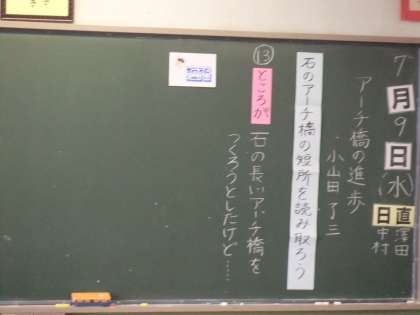 7月9日(水)
日直 澤田
中村
アーチ橋の進歩
小山田了三
石のアーチ橋の短所を読み取ろう
⑬ ところが
石の長いアーチ橋を
つくろうとしたけど……